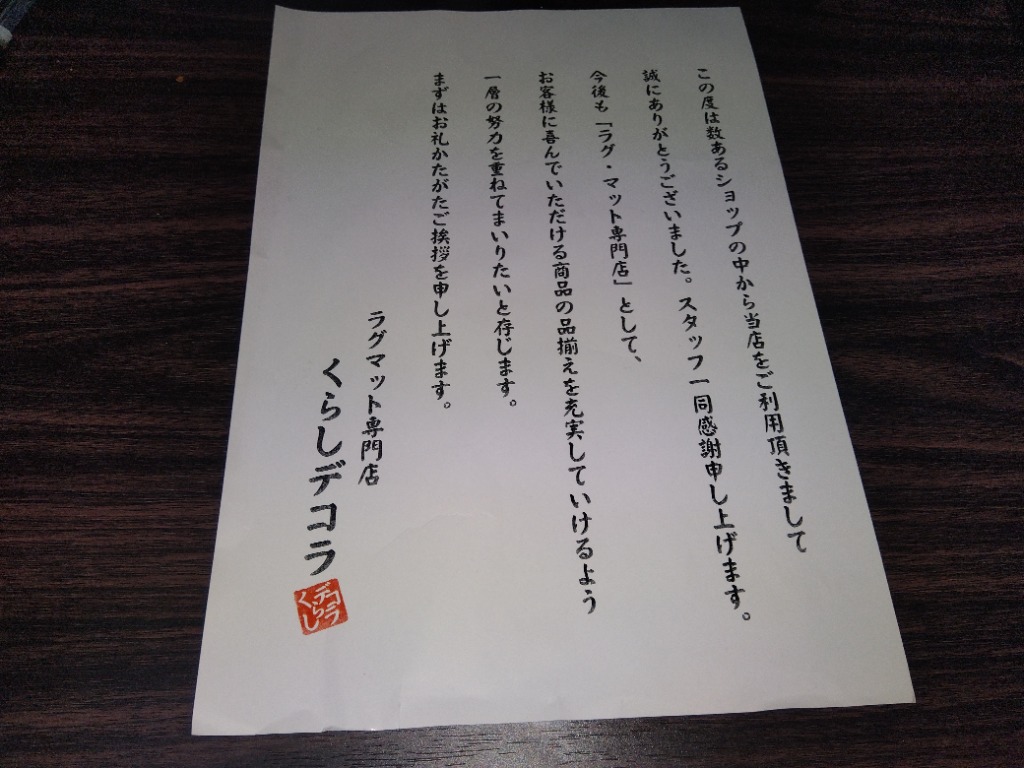 この度は数あるショップの中から当店をご利用頂きまして
誠にありがとうございました。スタッフ一同感謝申し上げます。
今後も「ラグ・マット専門店」として、
お客様に喜んでいただける商品の品揃えを充実していけるよう
一層の努力を重ねてまいりたいと存じます。
まずはお礼かたがたご挨拶を申し上げます。
ラグマット専門店
くらしデコラ
デコラ
くらし